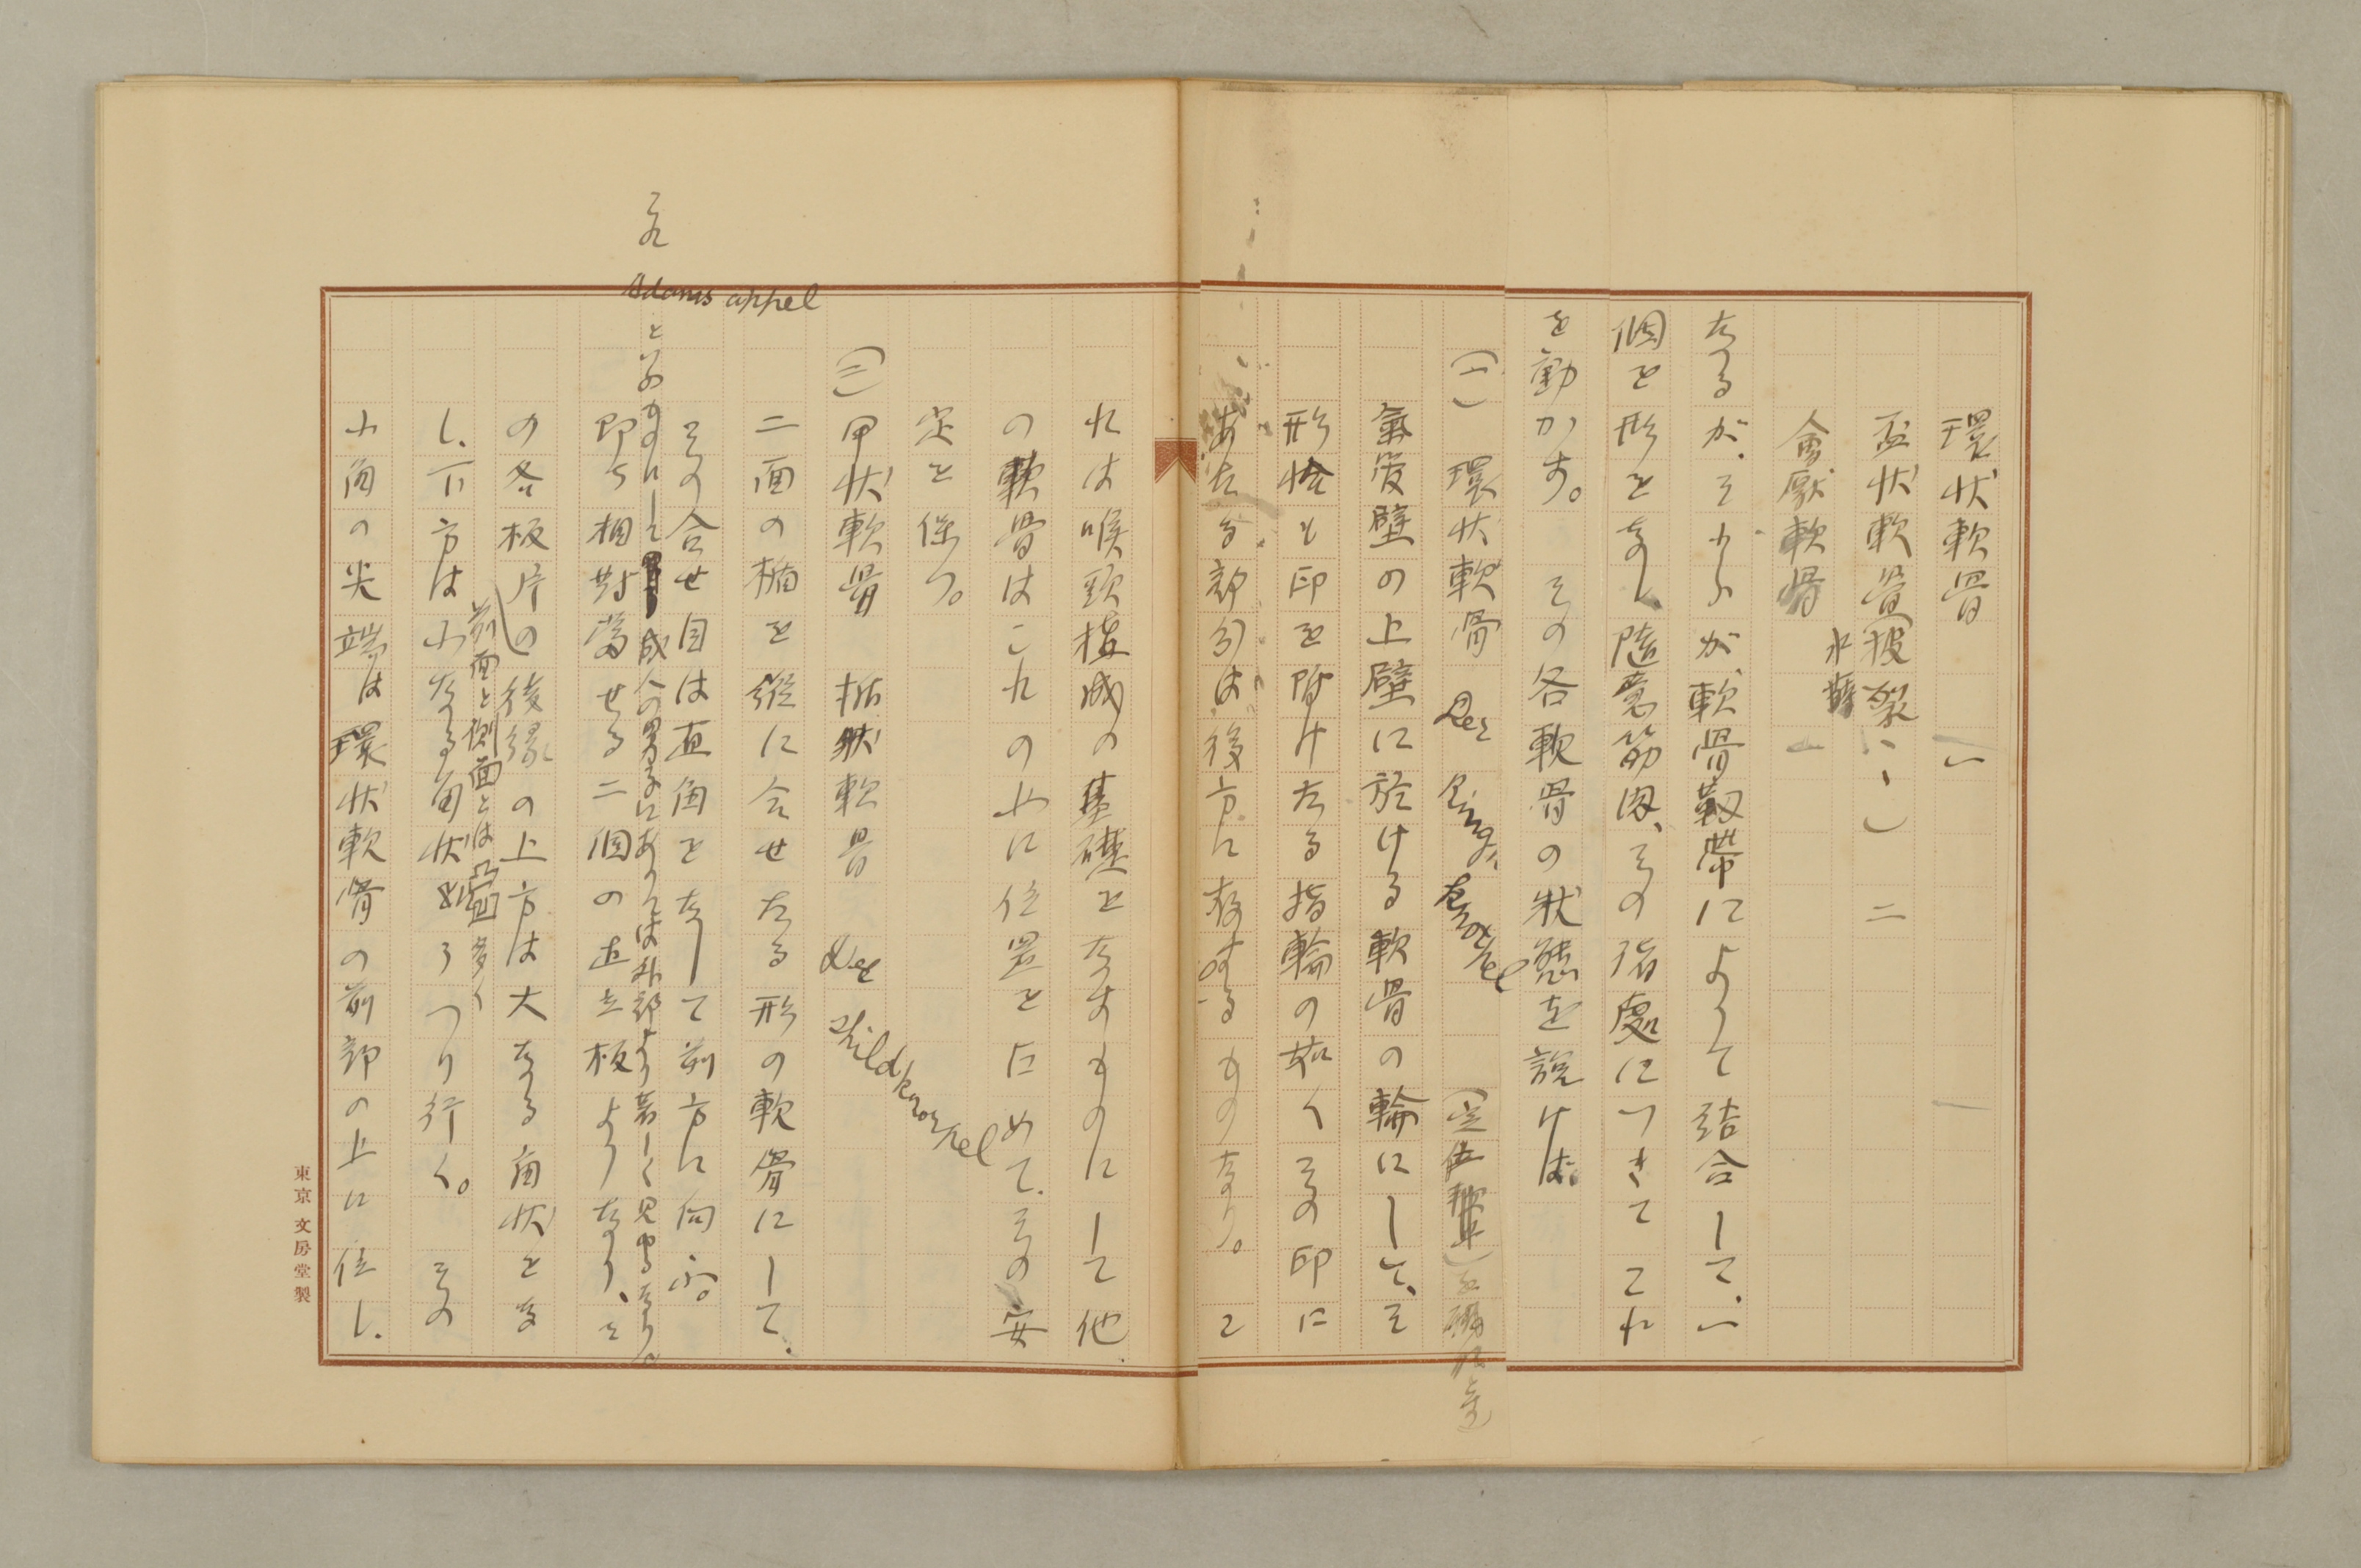 環状軟骨 一
盃状軟骨(披裂〃〃) 二
会厭軟骨 一
なるが、それらが、軟骨靱帯によつて結合して、一
個を形をなし、随意筋肉、その諸処につきてこれ
を動かす。 その各軟骨の状態を説けば、
(一) 環状軟骨 Der Ringknorpel
気管壁の上壁に於ける軟骨の輪にして、そ
形恰も印を附けたる指輪の如くその印に
あたる部分は後方に存するものなり。 こ
れは喉頭構成の基礎をなすものにして他
の軟骨はこれのみに位置を占めて、その安
定を保つ。
(二) 甲状軟骨 楯状軟骨 Der Schildknorpel
二面の楯を縦に合せたる形の軟骨にして、
その合せ目は直角をなして前方に向ふ。
之れ Adams appel
といふものにして 成人の男子にありては外部より著しく見ゆるなり。
即ち相対当せる二個の直立板よりなり、そ
の各板片の後縁の上方は大なる角状をな
前面と側面とは 多く
し、下方は小なる角状 うつり行く。 その
小角の尖端は環状軟骨の前部の上に位し、
東京 文房堂製